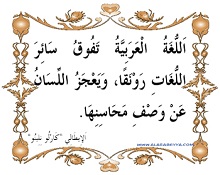 اَللُّغَةُ الْعَرَبِيَّةُ تَفُوقُ سَائِرَ
اللُّغَاتِ رَوْنَقًا، وَيَعْجَزُ اللِّسَانُ
عَنْ وَصْفِ مَحَاسِنِهَا.
الإيطالي "كَارْلُو نِلِّينُو"
WWW.ALARABEYYA.COM